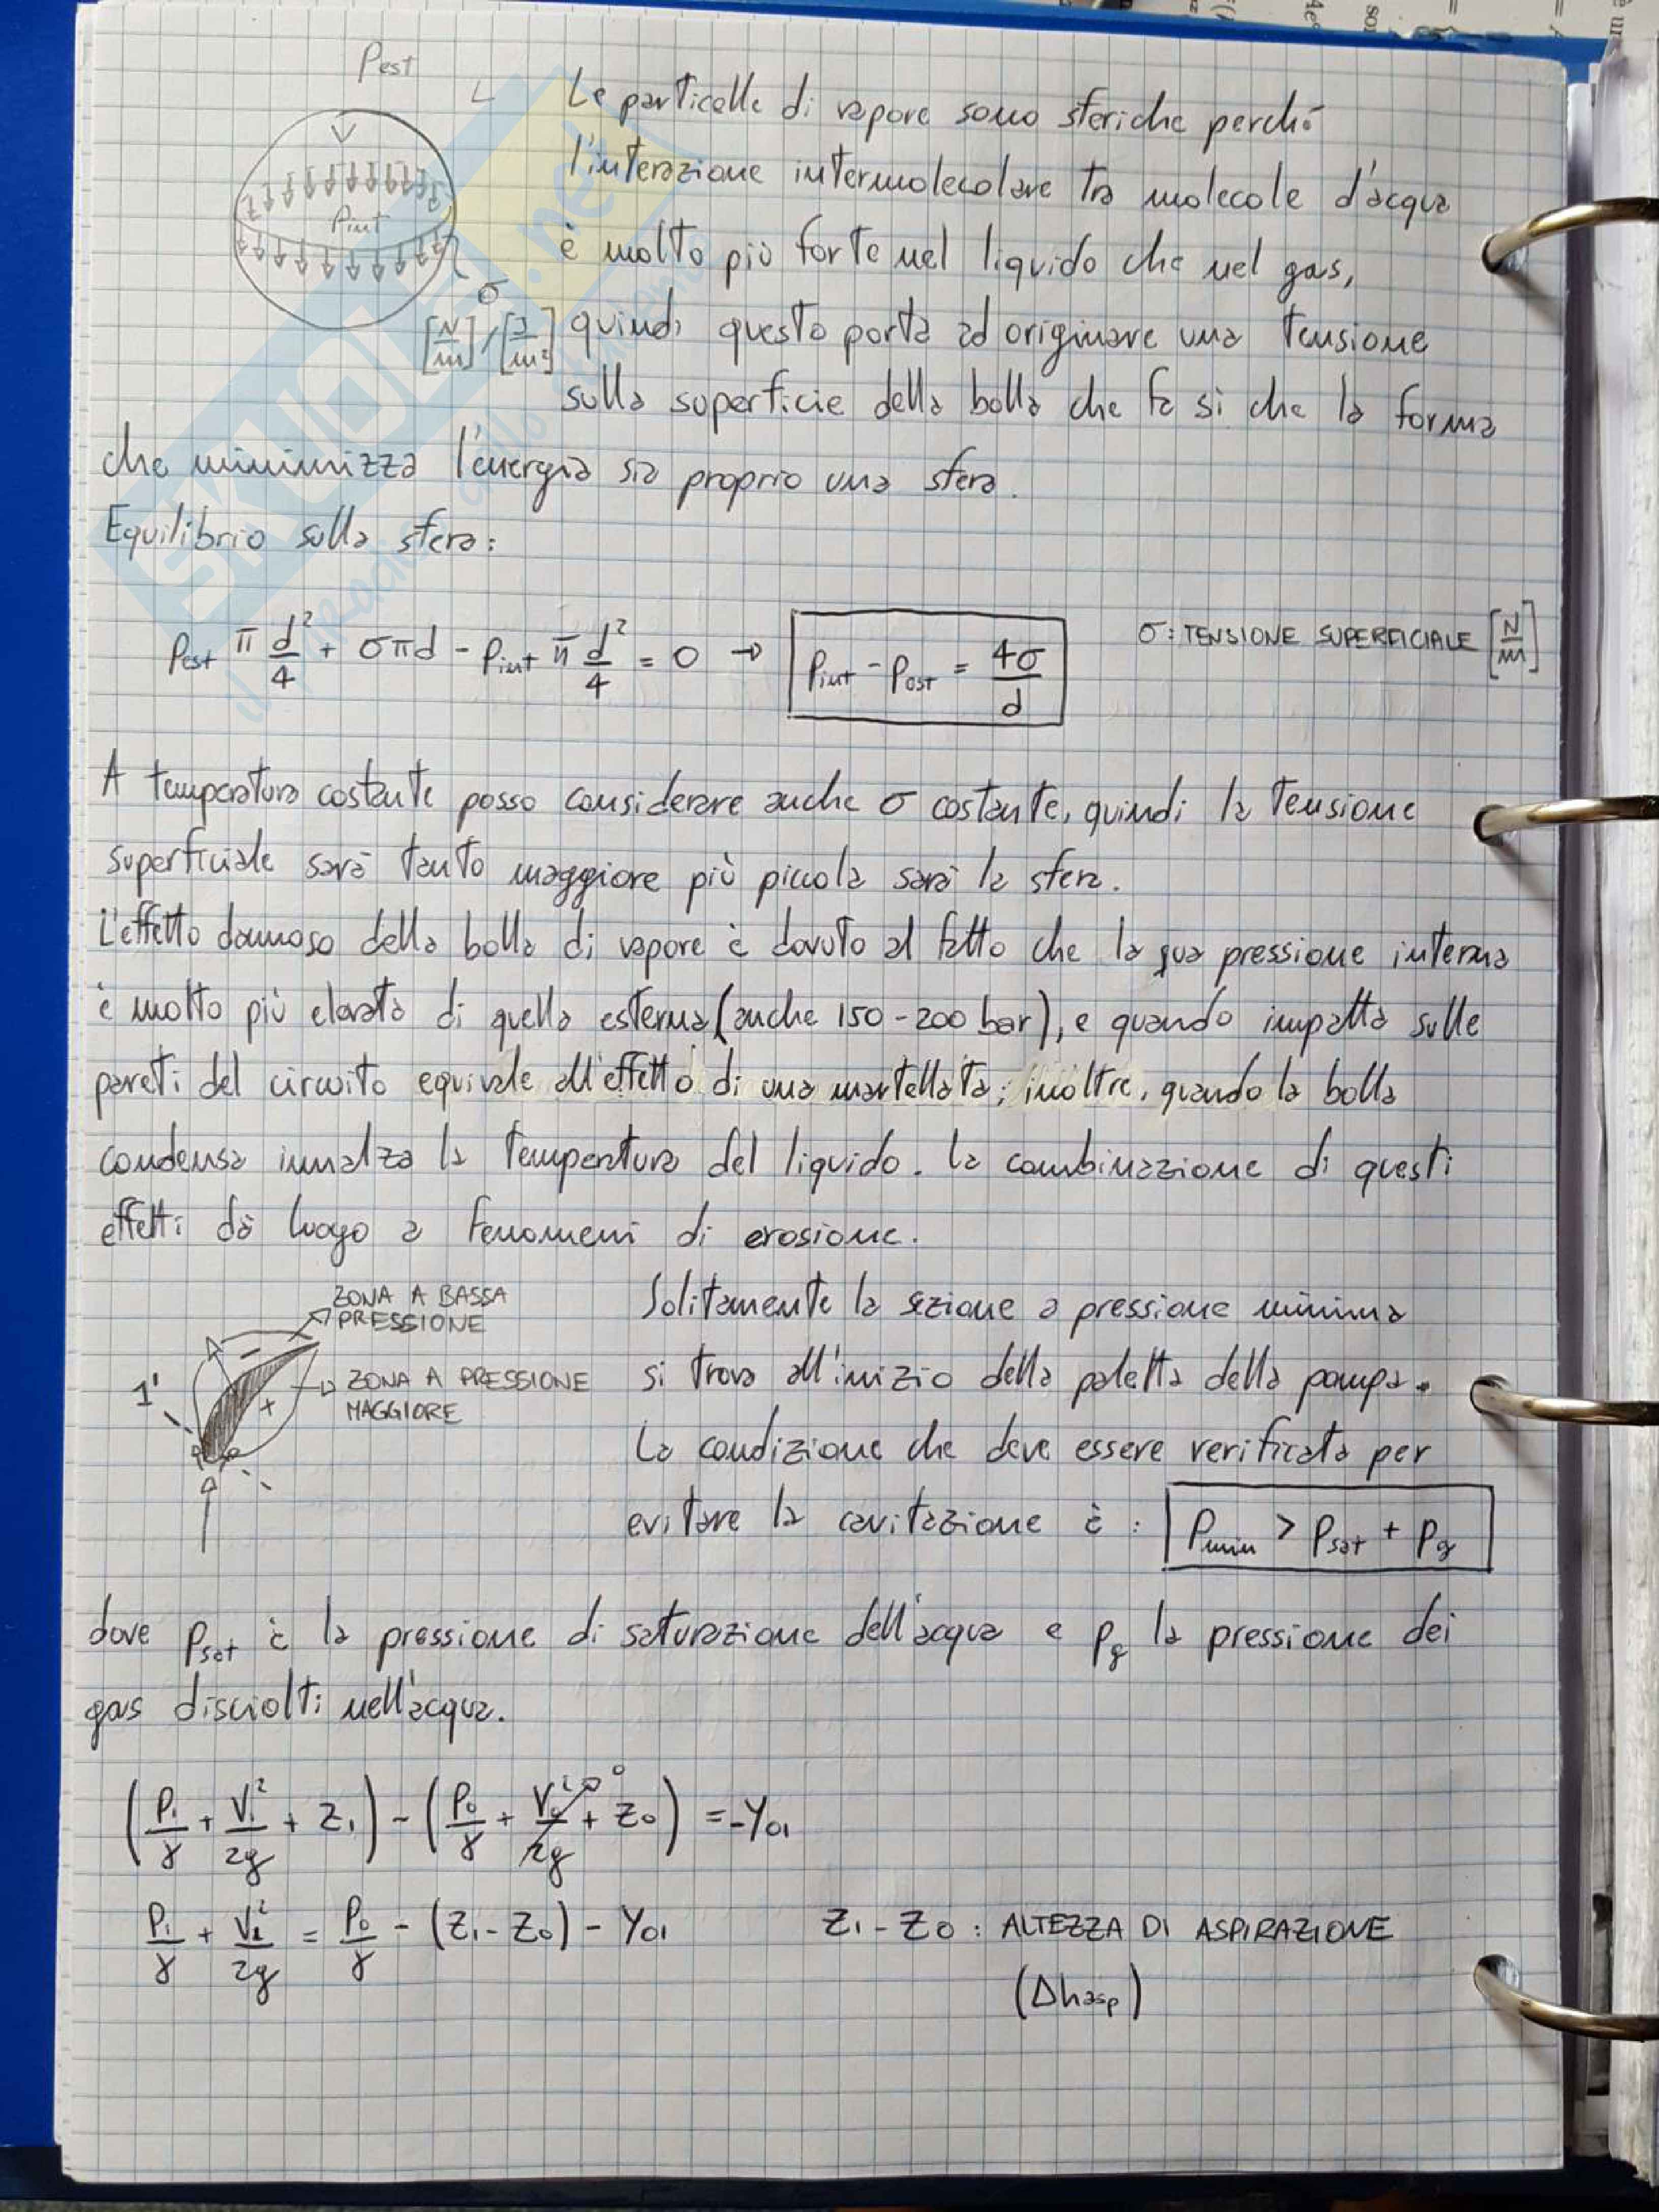 Pest
Le particelle di vapore sono sferiche perché
l'interazione intermolecolare tra molecole d'acqua
Pint
è molto più forte nel liquido che nel gas,
σ
[N/m] / [J/m²]
quindi questo porta ad originare una tensione
sulla superficie della bolla che fa sì che la forma
che minimizza l'energia sia proprio una sfera.
Equilibrio sulla sfera:
Pest π d²/4 + σπd - Pint π d²/4 = 0 → Pint - Pest = 4σ/d
σ: TENSIONE SUPERFICIALE [N/m]
A temperatura costante posso considerare anche σ costante, quindi la tensione
superficiale sarà tanto maggiore più piccola sarà la sfera.
L'effetto dannoso della bolla di vapore è dovuto al fatto che la sua pressione interna
è molto più elevata di quella esterna (anche 150-200 bar), e quando impatta sulle
pareti del circuito equivale all'effetto di una martellata; inoltre, quando la bolla
condensa innalza la temperatura del liquido. La combinazione di questi
effetti dà luogo a fenomeni di erosione.
ZONA A BASSA
PRESSIONE
1'
-
+
ZONA A PRESSIONE
MAGGIORE
Solitamente la sezione a pressione minima
si trova all'inizio della paletta della pompa.
La condizione che deve essere verificata per
evitare la cavitazione è: Pmin > Psat + Pg
dove Psat è la pressione di saturazione dell'acqua e Pg la pressione dei
gas disciolti nell'acqua.
(P₁/γ + V₁²/2g + Z₁) - (P₀/γ + V₀²/2g→0 + Z₀) = -Y₀₁
P₁/γ + V₁²/2g = P₀/γ - (Z₁-Z₀) - Y₀₁
Z₁-Z₀: ALTEZZA DI ASPIRAZIONE
(Δhasp)
SKUOLA.net